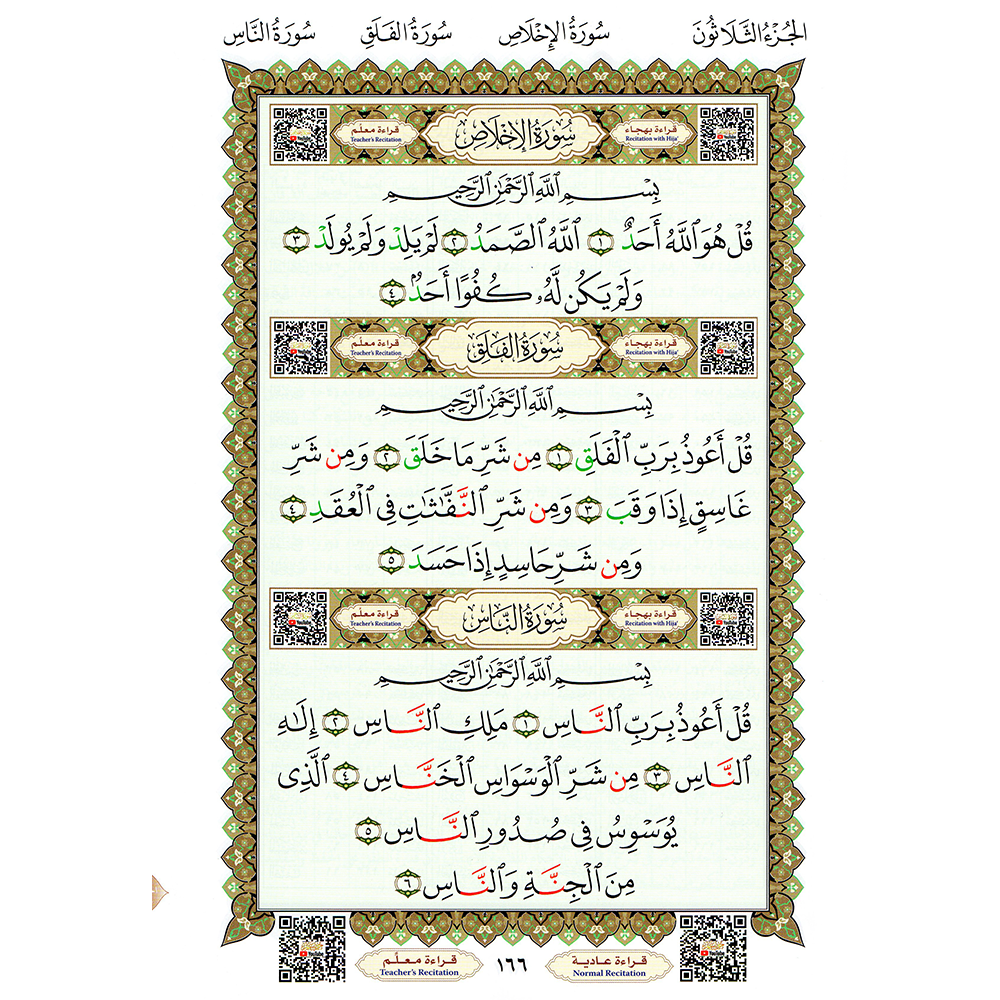 الجُزْءُ الثَّلَاثُونَ سُورَةُ الإِخْلَاصِ سُورَةُ الفَلَقِ سُورَةُ النَّاسِ
قراءة بهجاء سُورَةُ الإِخْلَاصِ قراءة معلّم
Recitation with Hija' Teacher's Recitation
بِسْمِ ٱللَّهِ ٱلرَّحْمَٰنِ ٱلرَّحِيمِ
قُلْ هُوَ ٱللَّهُ أَحَدٌ ١ ٱللَّهُ ٱلصَّمَدُ ٢ لَمْ يَلِدْ وَلَمْ يُولَدْ ٣
وَلَمْ يَكُن لَّهُۥ كُفُوًا أَحَدٌۢ ٤
قراءة بهجاء سُورَةُ الفَلَقِ قراءة معلّم
Recitation with Hija' Teacher's Recitation
بِسْمِ ٱللَّهِ ٱلرَّحْمَٰنِ ٱلرَّحِيمِ
قُلْ أَعُوذُ بِرَبِّ ٱلْفَلَقِ ١ مِن شَرِّ مَا خَلَقَ ٢ وَمِن شَرِّ
غَاسِقٍ إِذَا وَقَبَ ٣ وَمِن شَرِّ ٱلنَّفَّٰثَٰتِ فِى ٱلْعُقَدِ ٤
وَمِن شَرِّ حَاسِدٍ إِذَا حَسَدَ ٥
قراءة بهجاء سُورَةُ النَّاسِ قراءة معلّم
Recitation with Hija' Teacher's Recitation
بِسْمِ ٱللَّهِ ٱلرَّحْمَٰنِ ٱلرَّحِيمِ
قُلْ أَعُوذُ بِرَبِّ ٱلنَّاسِ ١ مَلِكِ ٱلنَّاسِ ٢ إِلَٰهِ
ٱلنَّاسِ ٣ مِن شَرِّ ٱلْوَسْوَاسِ ٱلْخَنَّاسِ ٤ ٱلَّذِى
يُوَسْوِسُ فِى صُدُورِ ٱلنَّاسِ ٥
مِنَ ٱلْجِنَّةِ وَٱلنَّاسِ ٦
قراءة عادية ١٦٦ قراءة معلّم
Normal Recitation Teacher's Recitation